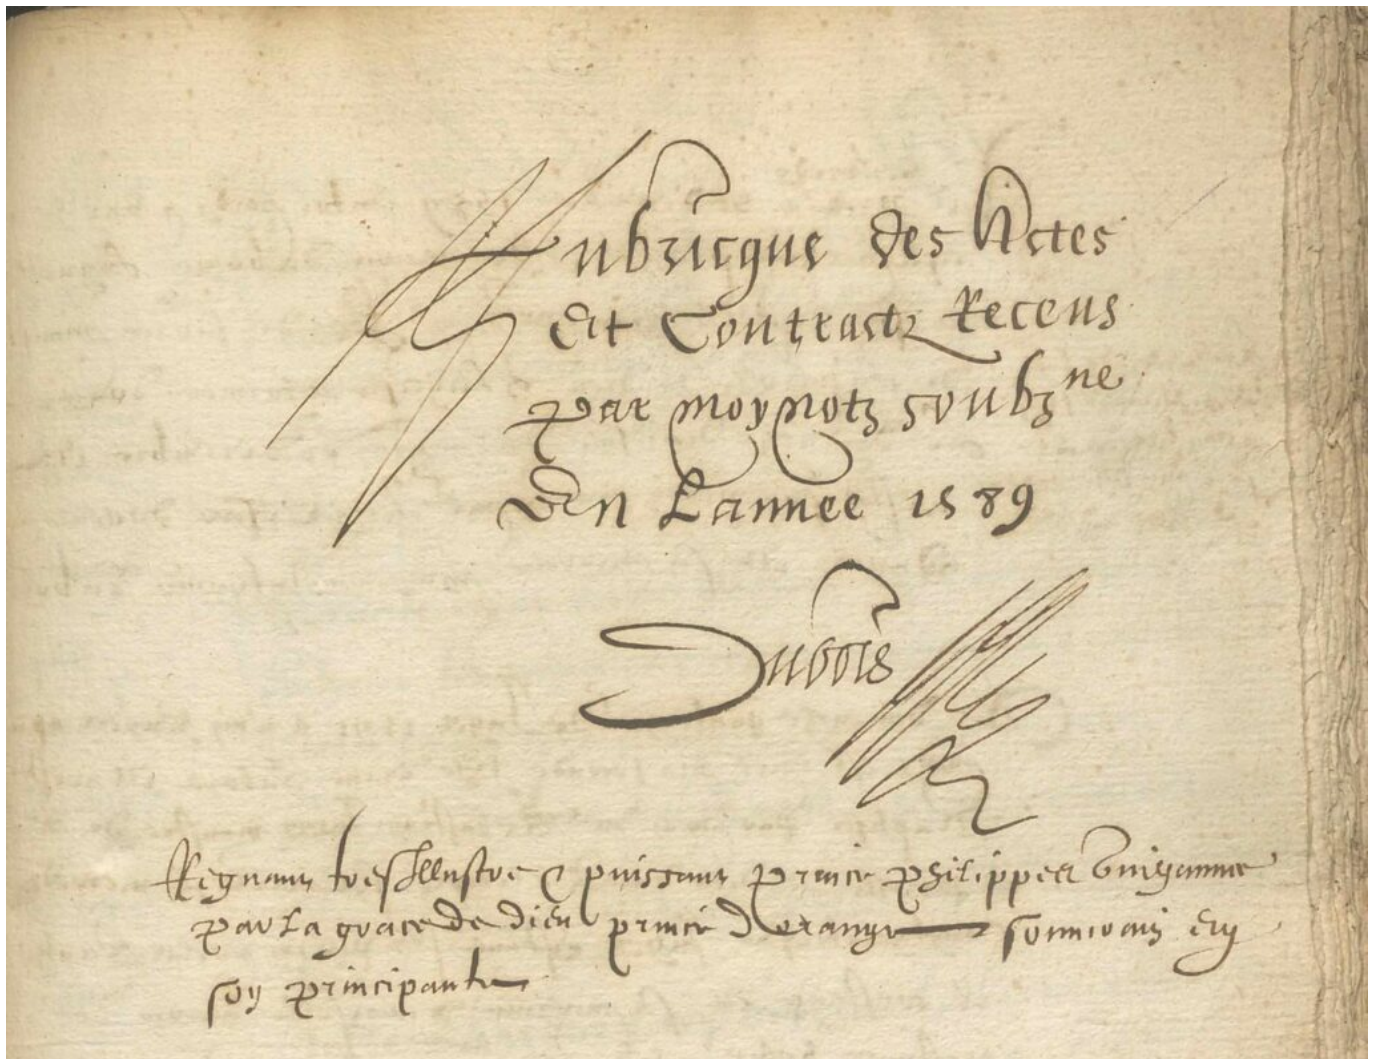 Rubricque des Actes
Et Contractz Receus
par moy notz soubzne
En Lannee 1589
Dubois
Regnant tresIllustre & puissant prince Philippes Guihaume
par La grace de dieu prince Dorange souuerain en
soy principaulte